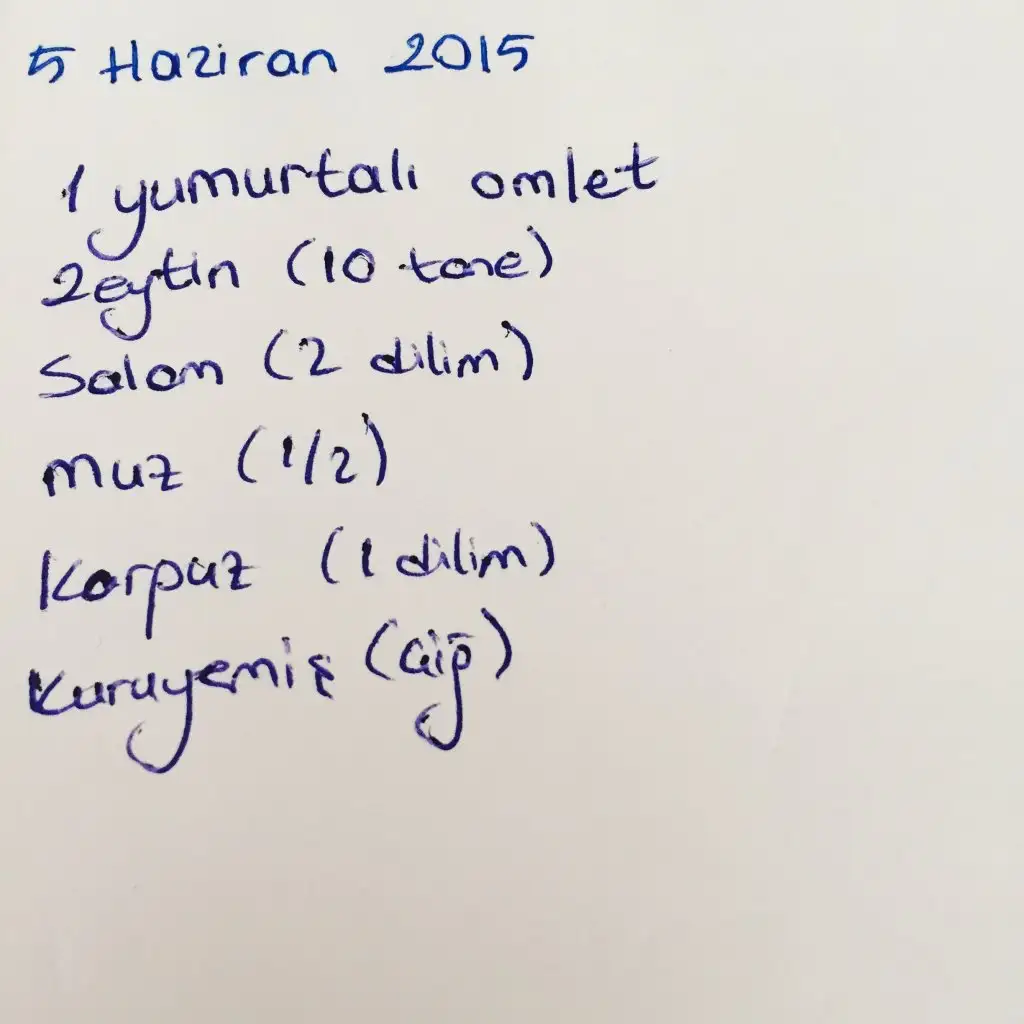 5 Haziran 2015
1 yumurtalı omlet
Zeytin (10 tane)
Salam (2 dilim)
muz (1/2)
Karpuz (1 dilim)
Kuruyemiş (çiğ)